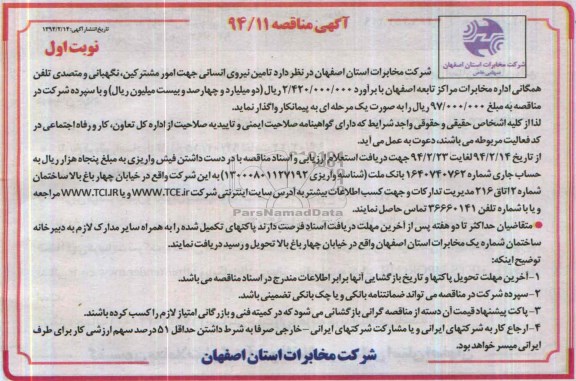 آگهی مناقصه ۹۴/۱۱
تاریخ انتشار آگهی: ۱۳۹۴/۲/۱۴
نوبت اول
شرکت مخابرات استان اصفهان
(سهامی خاص)
شرکت مخابرات استان اصفهان در نظر دارد تامین نیروی انسانی جهت امور مشترکین، نگهبانی و متصدی تلفن
همگانی اداره مخابرات مراکز تابعه اصفهان با برآورد ۲/۴۲۰/۰۰۰/۰۰۰ ریال (دو میلیارد و چهارصد و بیست میلیون ریال) و با سپرده شرکت در
مناقصه به مبلغ ۹۷/۰۰۰/۰۰۰ ریال را به صورت یک مرحله ای به پیمانکار واگذار نماید.
لذا از کلیه اشخاص حقیقی و حقوقی واجد شرایط که دارای گواهینامه صلاحیت ایمنی و تاییدیه صلاحیت از اداره کل تعاون، کار و رفاه اجتماعی در
کد فعالیت مربوطه می باشند، دعوت به عمل می آید.
از تاریخ ۹۴/۲/۱۴ لغایت ۹۴/۲/۲۳ جهت دریافت استعلام ارزیابی و اسناد مناقصه با در دست داشتن فیش واریزی به مبلغ پنجاه هزار ریال به
حساب جاری شماره ۱۶۴۰۷۴۰۷۶۲ بانک ملت (شناسه واریزی ۱۳۰۰۰۸۰۱۱۲۷۱۹۲) به این شرکت واقع در خیابان چهارباغ بالا ساختمان
شماره ۲ اتاق ۲۱۶ مدیریت تدارکات و جهت کسب اطلاعات بیشتر به آدرس سایت اینترنتی شرکت WWW.TCE.ir و یا WWW.TCI.IR مراجعه
و یا با شماره تلفن ۳۶۶۶۰۱۴۱ تماس حاصل نمایند.
● متقاضیان حداکثر تا دو هفته پس از آخرین مهلت دریافت اسناد فرصت دارند پاکتهای تکمیل شده را به همراه سایر مدارک لازم به دبیرخانه
ساختمان شماره یک مخابرات استان اصفهان واقع در خیابان چهارباغ بالا تحویل و رسید دریافت نمایند.
توضیح اینکه:
۱- آخرین مهلت تحویل پاکتها و تاریخ بازگشایی آنها برابر اطلاعات مندرج در اسناد مناقصه می باشد.
۲- سپرده شرکت در مناقصه می تواند ضمانتنامه بانکی و یا چک بانکی تضمینی باشد.
۳- پاکت پیشنهاد قیمت آن دسته از مناقصه گرانی بازگشایی می شود که در کمیته فنی و بازرگانی امتیاز لازم را کسب کرده باشند.
۴- ارجاع کار به شرکتهای ایرانی و یا مشارکت شرکتهای ایرانی - خارجی صرفا به شرط داشتن حداقل ۵۱ درصد سهم ارزشی کار برای طرف
ایرانی میسر خواهد بود.
شرکت مخابرات استان اصفهان
ParsNamadData